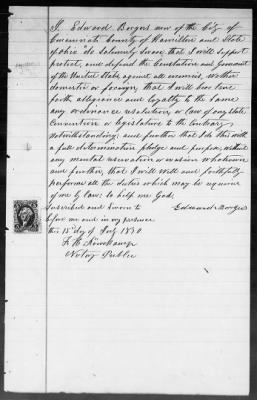 I, Edward Borges now of the City of
Cincinnati County of Hamilton and State
of Ohio do Solemnly Swear that I will support
protect, and defend the Constitution and Government
of the United States against all enemies, whether
domestic or foreign, that I will bear true
faith, allegiance and loyalty to the same
any ordinance resolution, or law of any State
Convention or Legislature to the Contrary
notwithstanding; and further that I do this with
a full determination pledge and purpose, without
any mental reservation or evasion whatsoever
and further, that I will well and faithfully
perform all the duties which may be required
of me by law; So help me God;
Subscribed and Sworn to Edward Borges
before me and in my presence
this 15 day of July 1870
Notary Public